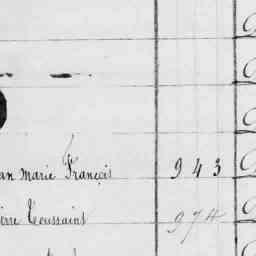 an marie François 943
ierre Toussaint 974